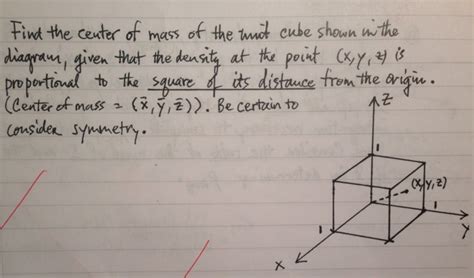 Find the center of mass of the unit cube shown in the
diagram, given that the density at the point (x, y, z) is
proportional to the square of its distance from the origin.
(Center of mass = (x̄, ȳ, z̄)). Be certain to
consider symmetry.
z
1
(x, y, z)
1
1
y
x